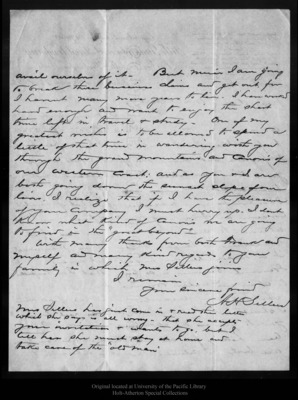 avail ourselves of it. But mine I am going
to break these business lines and get out for
I havent many more years to live. I have worked
hard enough and want to enjoy the short
time left in travel & study. One of my
greatest wishes is to be allowed to spend a
little of that time in wandering with you
through the grand mountains and Canons of
our Western Coast. and as you & I are
both going down the sunset slope of our
lives, I realize that if I have the pleasure
of your Company I must hurry up. I dont
know what kind of Canons we are going
to find in the "great beyond"
With many thanks from both and
myself and my kind regards to your
family in which Mrs Sellers joins
I remain
Your sincere friend
A H Sellers
Mrs Sellers has just come & read this letter
which she says is all wrong - that she accepts
your invitation & wants to go. but I
tell her she must stay at home and
take care of the old man
Original located at University of the Pacific Library
Holt-Atherton Special Collections